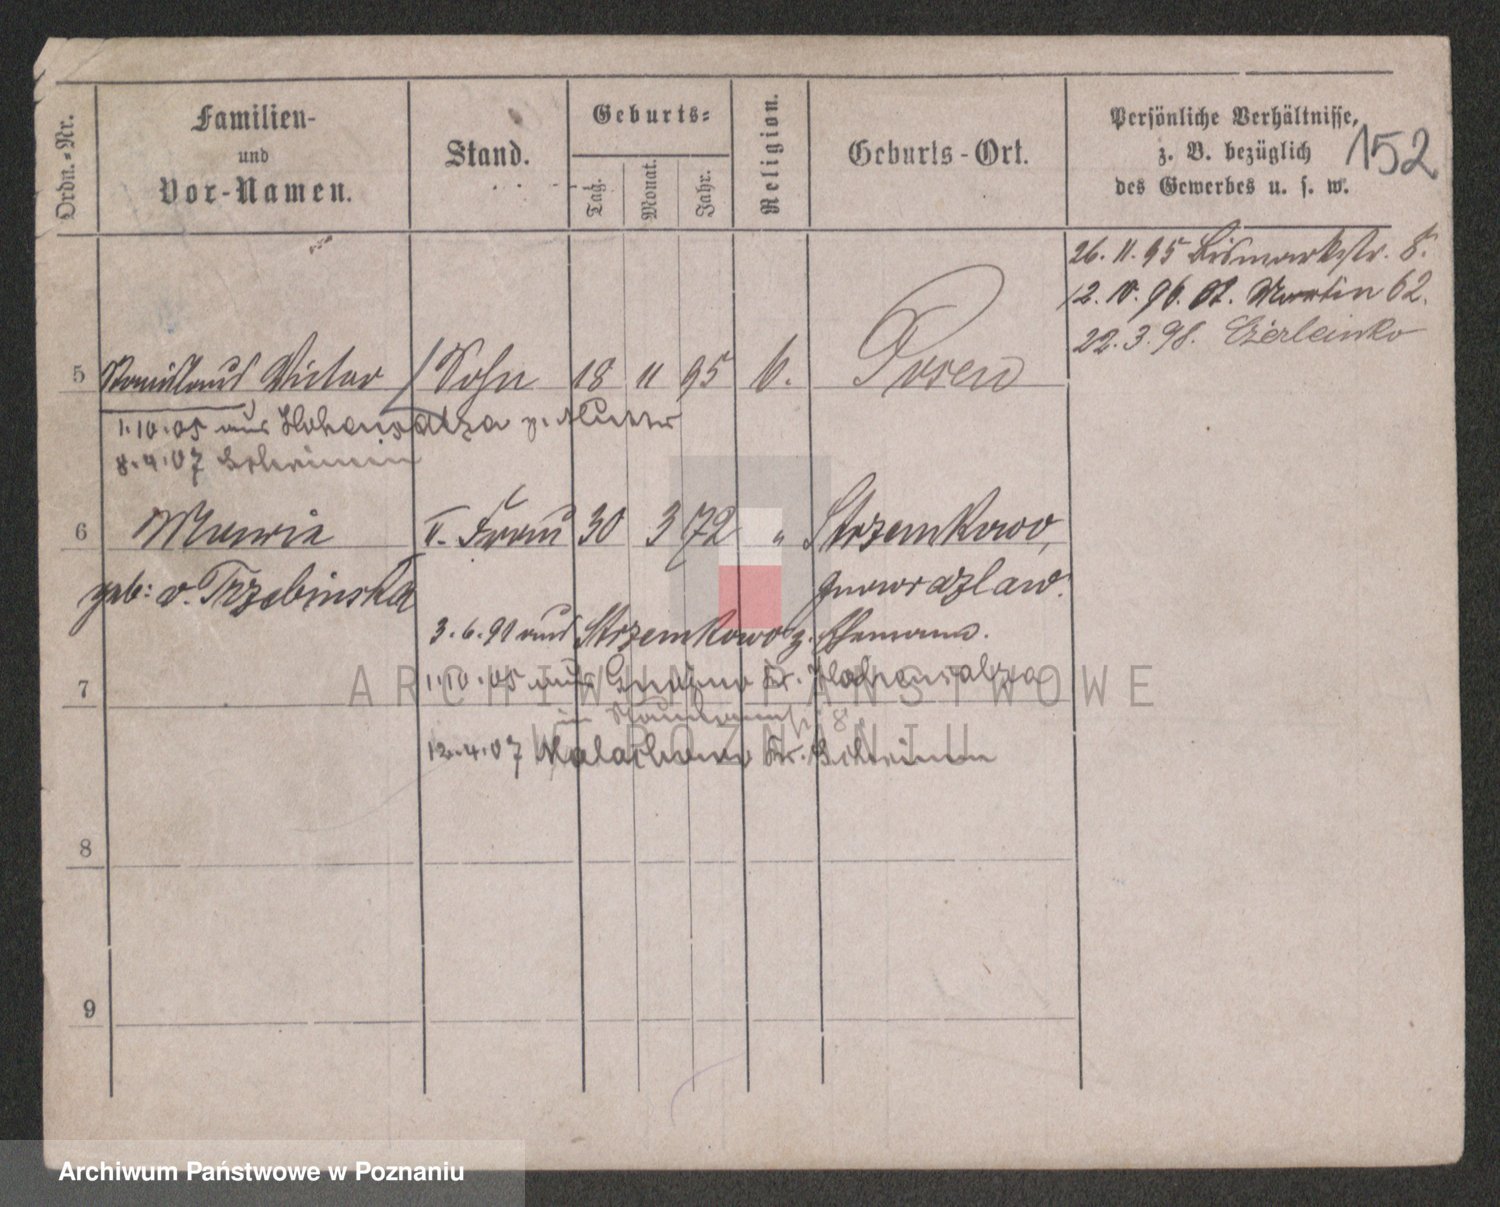 Ordn.-Nr.
Familien-
und
Vor-Namen.
Stand.
Geburts-
Tag.
Monat.
Jahr.
Religion.
Geburts-Ort.
Persönliche Verhältnisse,
z. B. bezüglich
des Gewerbes u. s. w.
152
26. 11. 95 Bismarkstr. 8.
12. 10. 96. St. Martin 62.
22. 3. 98.
5 Victor Sohn 18 11 95 k. Posen
1.10.05 aus Hohensalza z. Mutter
8.4.07 Schrimm
6 Maria II. Frau 30 3 72 " Strzemkowo,
geb: v. Trzebinska Inowrazlaw.
aus Strzemkowo z. Ehemann.
7
1.10.05 Kr. Hohensalza
12.4.07 Kr. Schrimm
8
9
ARCHIWUM PAŃSTWOWE
W POZNANIU
Archiwum Państwowe w Poznaniu